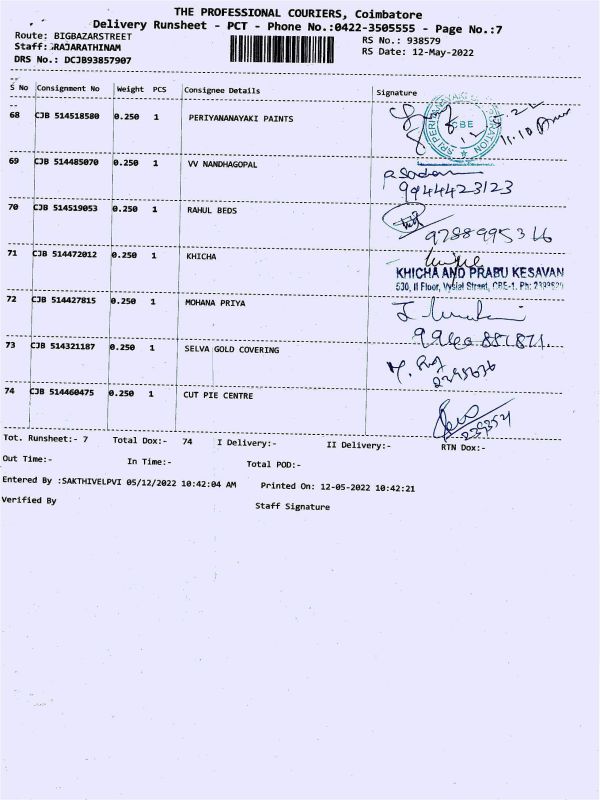 THE PROFESSIONAL COURIERS, Coimbatore
Delivery Runsheet - PCT - Phone No.:0422-3505555 - Page No.:7
Route: BIGBAZARSTREET
RS No.: 938579
Staff: RAJARATHINAM
RS Date: 12-May-2022
DRS No.: DCJB93857907
S No Consignment No Weight PCS Consignee Details Signature
68 CJB 514518580 0.250 1 PERIYANANAYAKI PAINTS
CBE
11.10
69 CJB 514485070 0.250 1 VV NANDHAGOPAL
9944423123
70 CJB 514519053 0.250 1 RAHUL BEDS
9788995316
71 CJB 514472012 0.250 1 KHICHA
KHICHA AND PRABU KESAVAN
530, II Floor, Vysial Street, CBE-1. Ph: 2399521
72 CJB 514427815 0.250 1 MOHANA PRIYA
73 CJB 514321187 0.250 1 SELVA GOLD COVERING
74 CJB 514460475 0.250 1 CUT PIE CENTRE
2393521
Tot. Runsheet:- 7 Total Dox:- 74 I Delivery:- II Delivery:- RTN Dox:-
Out Time:- In Time:- Total POD:-
Entered By :SAKTHIVELPVI 05/12/2022 10:42:04 AM Printed On: 12-05-2022 10:42:21
Verified By Staff Signature